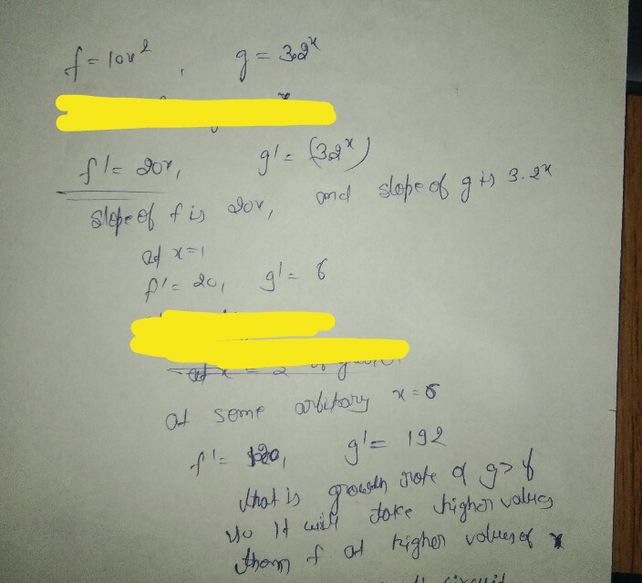 f = 10x², g = 3.2ˣ
f' = 20x, g' = (3.2ˣ)
slope of f is 20x, and slope of g is 3.2ˣ
at x=1
f' = 20, g' = 6
at x = 2
at some arbitary x = 6
f' = 120, g' = 192
that is growth rate of g > f
so it will take higher values
than f at higher values of x